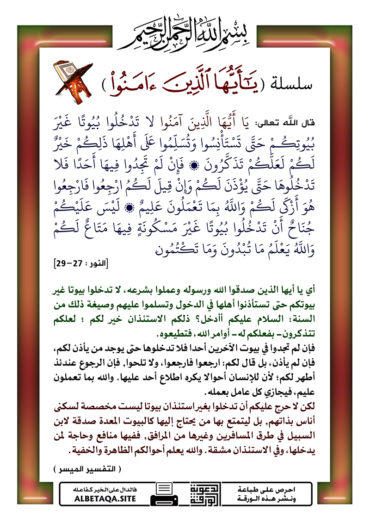 بِسْمِ اللَّهِ الرَّحْمَنِ الرَّحِيمِ
سلسلة ( يَٰٓأَيُّهَا ٱلَّذِينَ ءَامَنُوا۟ )
قال الله تعالى: يَا أَيُّهَا الَّذِينَ آمَنُوا لَا تَدْخُلُوا بُيُوتًا غَيْرَ
بُيُوتِكُمْ حَتَّى تَسْتَأْنِسُوا وَتُسَلِّمُوا عَلَى أَهْلِهَا ذَلِكُمْ خَيْرٌ
لَكُمْ لَعَلَّكُمْ تَذَكَّرُونَ ۞ فَإِنْ لَمْ تَجِدُوا فِيهَا أَحَدًا فَلَا
تَدْخُلُوهَا حَتَّى يُؤْذَنَ لَكُمْ وَإِنْ قِيلَ لَكُمُ ارْجِعُوا فَارْجِعُوا
هُوَ أَزْكَى لَكُمْ وَاللَّهُ بِمَا تَعْمَلُونَ عَلِيمٌ ۞ لَيْسَ عَلَيْكُمْ
جُنَاحٌ أَنْ تَدْخُلُوا بُيُوتًا غَيْرَ مَسْكُونَةٍ فِيهَا مَتَاعٌ لَكُمْ
وَاللَّهُ يَعْلَمُ مَا تُبْدُونَ وَمَا تَكْتُمُونَ
[النور : 27 – 29]
أي يا أيها الذين صدقوا الله ورسوله وعملوا بشرعه، لا تدخلوا بيوتا غير
بيوتكم حتى تستأذنوا أهلها في الدخول وتسلموا عليهم وصيغة ذلك من
السنة: السلام عليكم أأدخل؟ ذلكم الاستئذان خير لكم ؛ لعلكم
تتذكرون – بفعلكم له – أوامر الله، فتطيعوه.
فإن لم تجدوا في بيوت الآخرين أحدا فلا تدخلوها حتى يوجد من يأذن لكم،
فإن لم يأذن، بل قال لكم: ارجعوا فارجعوا، ولا تلحوا، فإن الرجوع عندئذ
أطهر لكم؛ لأن للإنسان أحوالا يكره اطلاع أحد عليها. والله بما تعملون
عليم، فيجازي كل عامل بعمله.
لكن لا حرج عليكم أن تدخلوا بغير استئذان بيوتا ليست مخصصة لسكنى
أناس بذاتهم, بل ليتمتع بها من يحتاج إليها كالبيوت المعدة صدقة لابن
السبيل في طرق المسافرين وغيرها من المرافق, ففيها منافع وحاجة لمن
يدخلها، وفي الاستئذان مشقة. والله يعلم أحوالكم الظاهرة والخفية.
( التفسير الميسر )
احرص على طباعة
ونشر هذه الورقة
الدعوية
الورقة
فالدال على الخير كفاعله
ALBETAQA.SITE